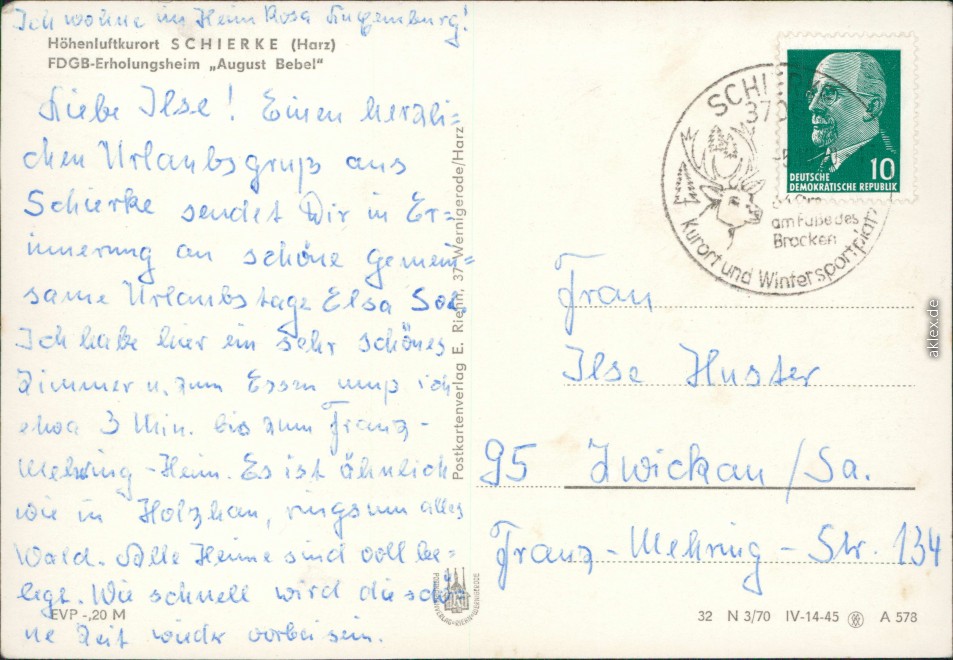 Ich wohne im Heim Rosa Luxemburg!
Höhenluftkurort SCHIERKE (Harz)
FDGB-Erholungsheim „August Bebel“
Liebe Ilse! Einen herzli=
chen Urlaubsgruß aus
Schierke sendet Dir in Er=
innerung an schöne gemein=
same Urlaubstage Elsa
Ich habe hier ein sehr schönes
Zimmer u. zum Essen muß ich
etwa 3 Min. bis zum Franz-
Mehring-Heim. Es ist ähnlich
wie in Holzhau, ringsum alles
Wald. Alle Heime sind voll be=
legt. Wie schnell wird die schö
ne Zeit wieder vorbei sein.
EVP -,20 M
Postkartenverlag E. Riehn, 37 Wernigerode/Harz
SCHIERKE
370
am Fuße des
Brocken
Kurort und Wintersportplatz
10
DEUTSCHE
DEMOKRATISCHE REPUBLIK
Frau
Ilse Huster
95 Zwickau/Sa.
Franz-Mehring-Str. 134
32 N 3/70 IV-14-45 A 578
aklex.de